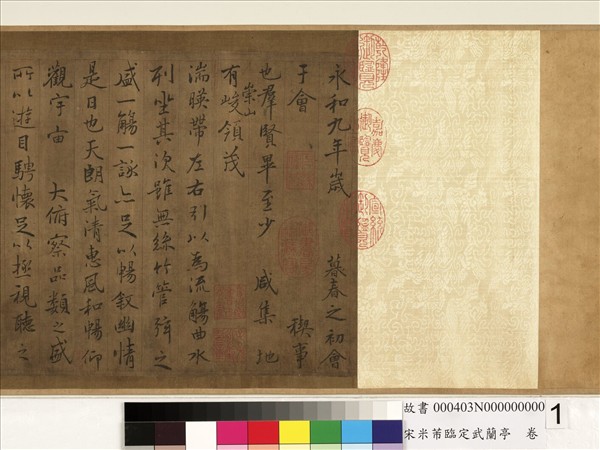 永和九年歲 暮春之初會
于會 禊事
也羣賢畢至少 咸集 地
有崇山峻領茂
湍暎帶左右引以為流觴曲水
列坐其次雖無絲竹管弦之
盛一觴一詠亦足以暢敘幽情
是日也天朗氣清惠風和暢仰
觀宇宙 大俯察品類之盛
所以遊目騁懷足以極視聽之
嘉慶御覽
故書 000403N000000000
宋米芾臨定武蘭亭 卷
1